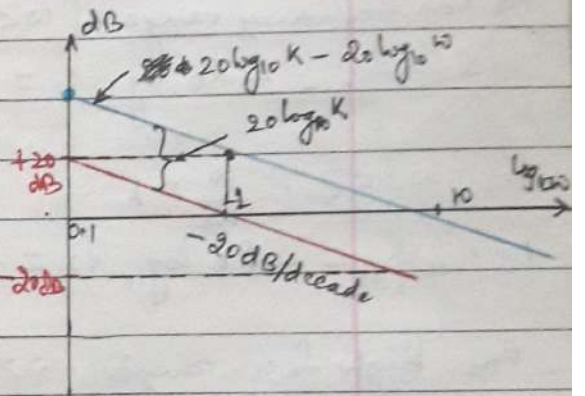 dB
20 log10 K - 20 log10 ω
20 log10 K
+20
dB
log10 ω
0.1
1
10
-20dB/decade
-20dB